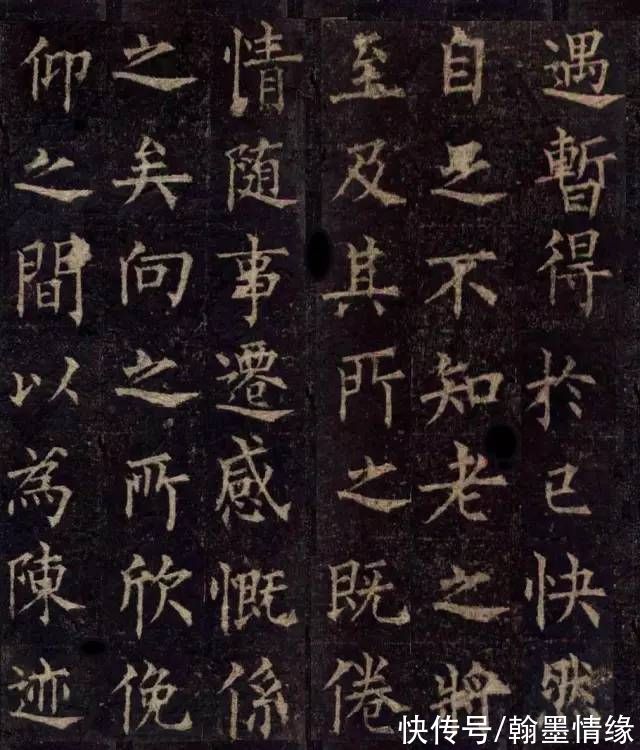 遇暫得於己快然
自足不知老之將
至及其所之既倦
情隨事遷感慨係
之矣向之所欣俛
仰之間以為陳迹
快传号/翰墨情缘